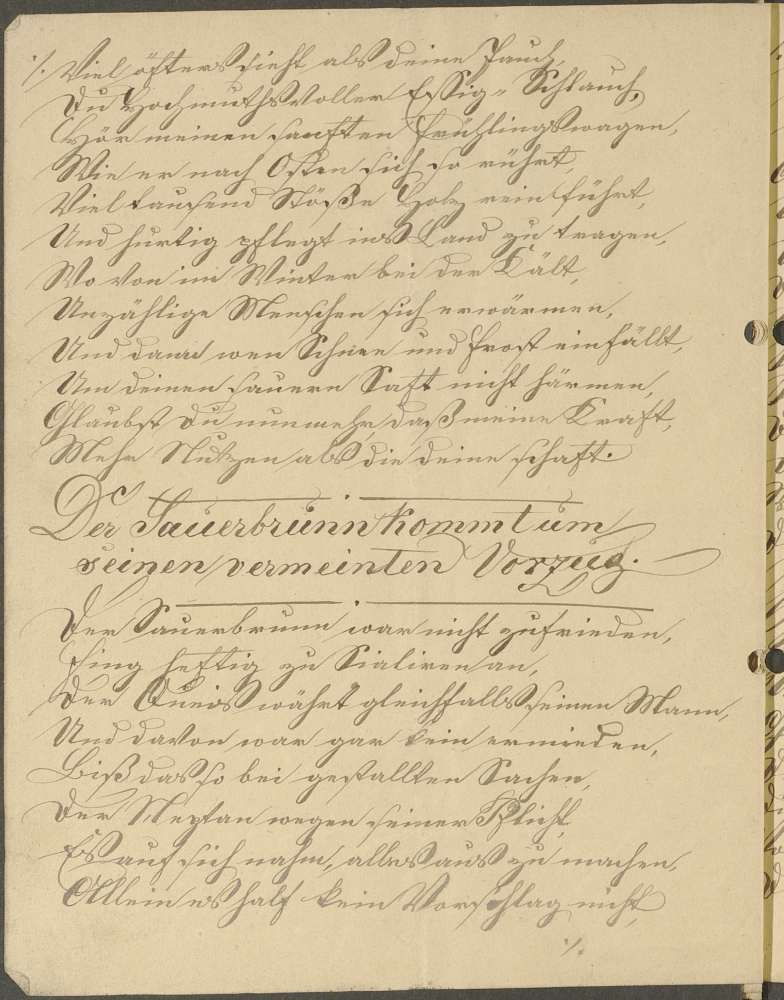 ·/. Viel öfters sieht als deine Pauch,
Du Hochmuths voller Essig-Schlauch,
Hör meinen sanften Frühlingswagen,
Wie er nach Osten sich so rührt,
Viel tausend Stöße Holz rein führt,
Und hurtig pflegt ins Land zu tragen,
Wo von im Winter bei der Kält,
Unzählige Menschen sich erwärmen,
Und dann wen Schnee und Frost einfällt,
Um deinen sauern Saft nicht härmen,
Glaubst Du nunmehr, daß meine Kraft,
Mehr Nutzen als die deine schaft.
Der Sauerbrunn kommt um
seinen vermeinten Vorzug.
Der Sauerbrunn war nicht zufrieden,
Fing heftig zu an,
Der Queis währt gleichfalls seinen Mann,
Und davon war gar kein ermieden,
Biß das so bei gestallten Sachen,
Der Neptan wegen seiner Pflicht,
Es auf sich nahm, alles aus zu machen,
Allein es half kein Vorschlag nicht,
·/.